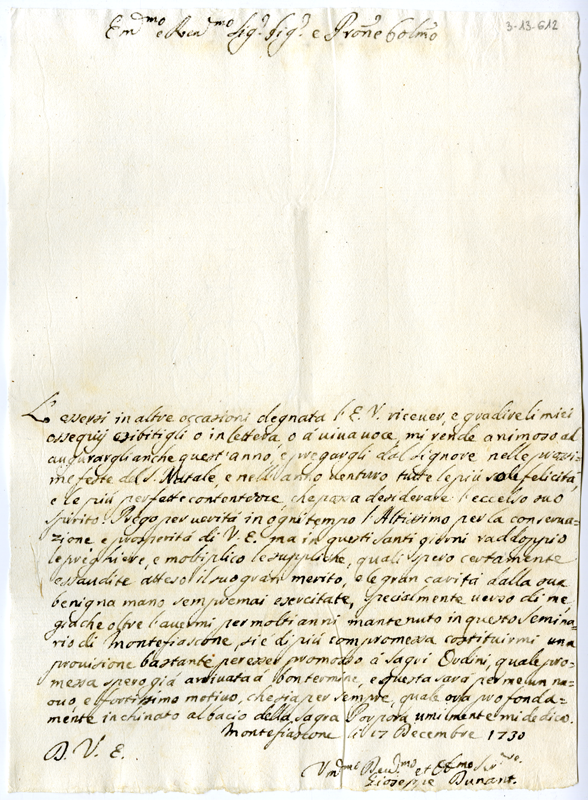 Em.mo e Rev.mo Sig.r Sig.r e Prōne Colmo
3-13-612
L'essersi in altre occasioni degnata l'E.V. ricever, e gradire li miei
ossequij esibitigli o in lettera, o à viva voce, mi rende animoso ad
augurargli anche quest'anno, e pregargli dal Signore nelle prossi=
me feste del S. Natale, e nell'anno venturo tutte le più sode felicità,
e le più perfette contentezze, che possa desiderare l'eccelso suo
spirito. Prego per verità in ogni tempo l'Altissimo per la conserva=
zione e prosperità di V.E. ma in questi santi giorni raddoppio
le preghiere, e moltiplico le suppliche, quali spero certamente
essaudite atteso il suo gran merito, e le gran carità dalla sua
benigna mano sempremai esercitate, specialmente verso di me
giache oltre l'avermi per molti anni mantenuto in questo Semina=
rio di Montefiascone, si è di più compromessa costituirmi una
provisione bastante per esser promosso à sagri Ordini, quale pro=
messa spero già arrivata à bon termine, e questa sarà per me un nu=
ovo e fortissimo motivo, che sia per sempre, quale ora profonda=
mente inchinato al bacio della Sagra Porpora umilmente mi dedico.
Montefiascone li 17 Decembre 1730
D. V. E.
Um.mo Dev.mo et Obl.mo Ser.re
Gioseppe Dunant.